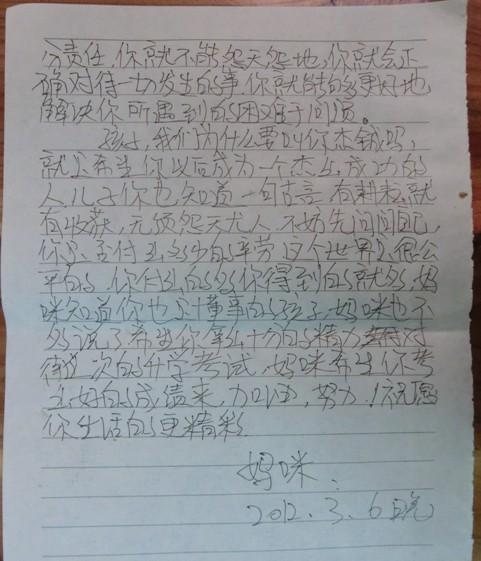 分责任,你就不能怨天怨地,你就会正
确对待一切发生的事,你就能够更好地
解决你所遇到的困难于问题。
孩子,我们为什么要叫你杰铖吗,
就是希望你以后成为一个杰出成功的
人,儿子你也知道一句古言,有耕耘就
有收获,无须怨天尤人,不妨先问问自己,
你是否付出多少的辛劳,这个世界是很公
平的,你付出的多你得到的就多,妈
咪知道你也是个懂事的孩子,妈咪也不
多说了希望你拿出十分的精力对
待这一次的升学考试,妈咪希望你考
出好的成绩来,加油,努力!祝愿
你生活的更精彩
妈咪:
2012.3.6晚